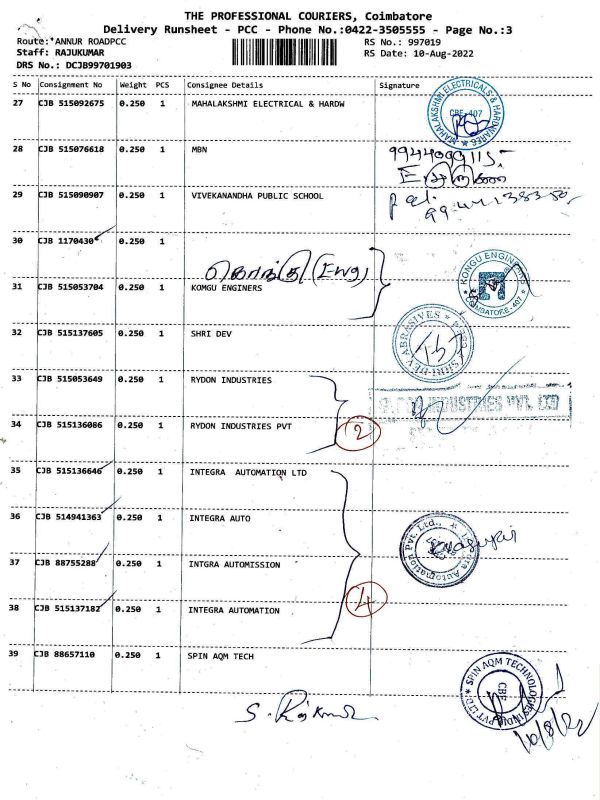 THE PROFESSIONAL COURIERS, Coimbatore
Delivery Runsheet - PCC - Phone No.:0422-3505555 - Page No.:3
Route:*ANNUR ROADPCC RS No.: 997019
Staff: RAJUKUMAR RS Date: 10-Aug-2022
DRS No.: DCJB99701903
S No Consignment No Weight PCS Consignee Details Signature
27 CJB 515092675 0.250 1 MAHALAKSHMI ELECTRICAL & HARDW
MAHALAKSHMI ELECTRICALS & HARDWARES
CBE-407
28 CJB 515076618 0.250 1 MBN
29 CJB 515090907 0.250 1 VIVEKANANDHA PUBLIC SCHOOL
30 CJB 1170430 0.250 1
கொங்கு (Eng)
31 CJB 515053704 0.250 1 KOMGU ENGINERS
KONGU ENGINEERS
COIMBATORE-407
32 CJB 515137605 0.250 1 SHRI DEV
SHRI DEV ABRASIVES
33 CJB 515053649 0.250 1 RYDON INDUSTRIES
INDUSTRIES PVT. LTD
34 CJB 515136086 0.250 1 RYDON INDUSTRIES PVT
2
35 CJB 515136646 0.250 1 INTEGRA AUTOMATION LTD
36 CJB 514941363 0.250 1 INTEGRA AUTO
Integra Automation Pvt. Ltd.,
37 CJB 88755288 0.250 1 INTGRA AUTOMISSION
4
38 CJB 515137182 0.250 1 INTEGRA AUTOMATION
39 CJB 88657110 0.250 1 SPIN AQM TECH
SPIN AQM TECHNOLOGIES INDIA PVT LTD
CBE
10/8/22
S. Rajkumar